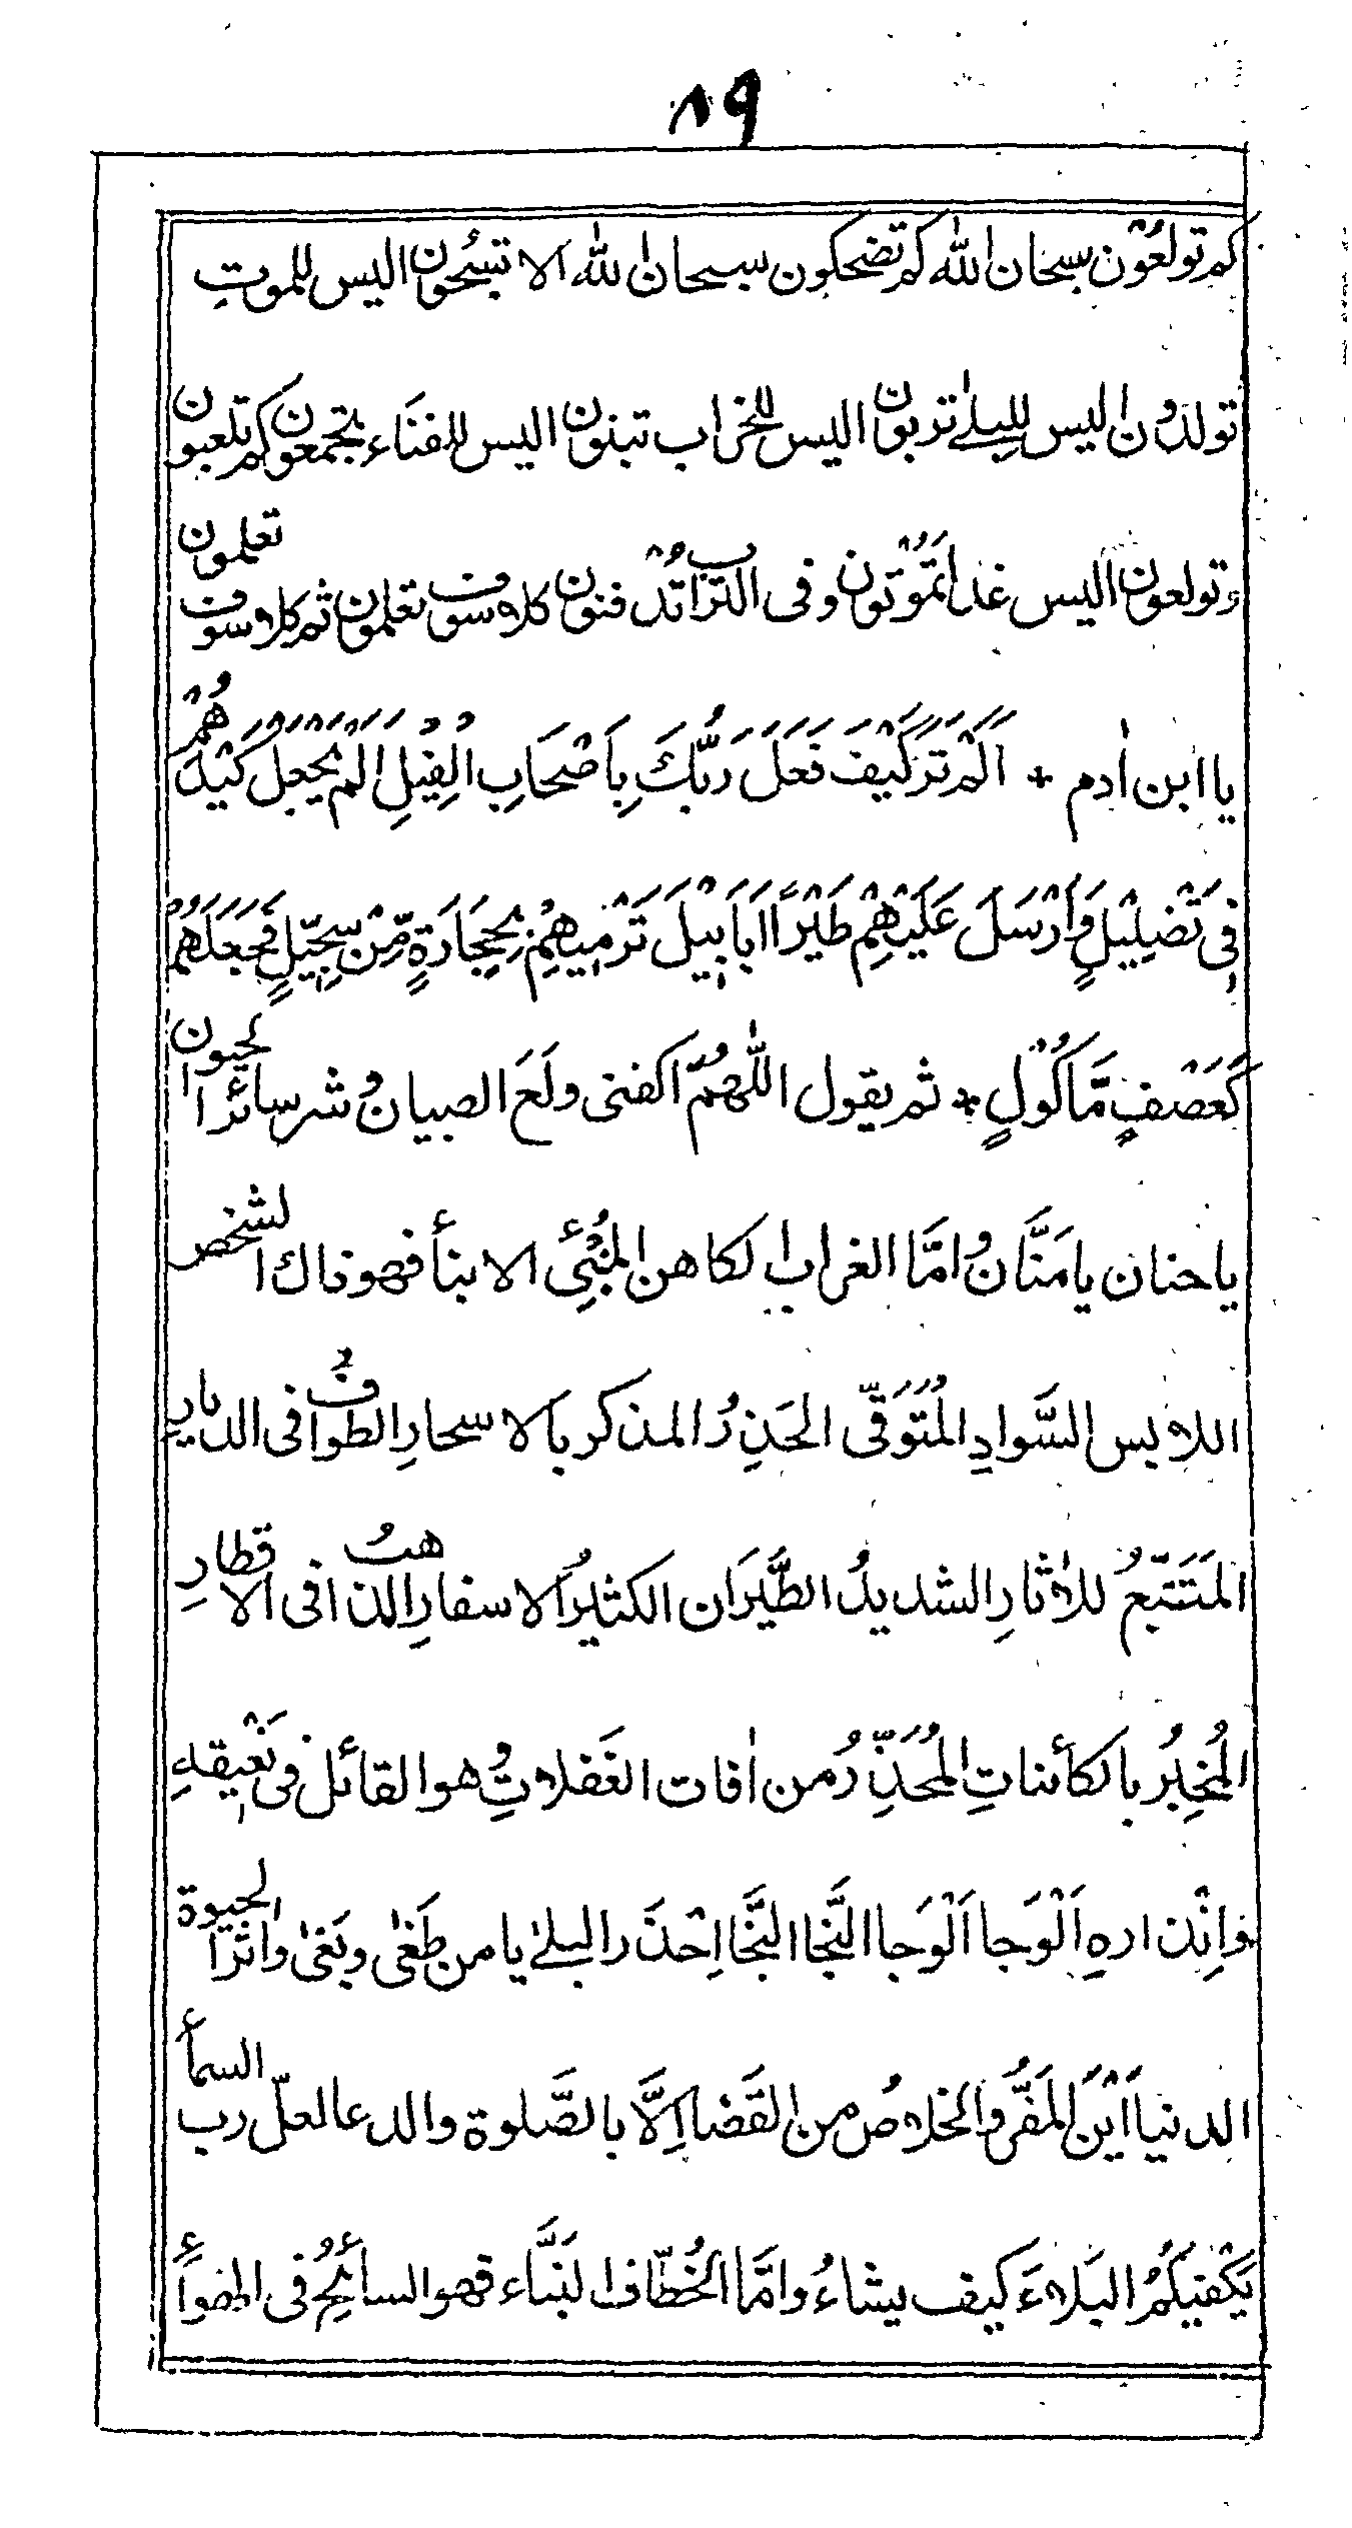 ٨٩
كم تولعُوْن سبحان اللّٰه كم تضحكون سبحان اللّٰه الا تسبّحون اليس للموتِ
تولدُون اليس للبلےٰ تربون اليس للخراب تبنون اليس للفنَاء تجمعون كم تلعبون
وتولعون اليس غدا تَمُوْتون وفى التراب تُدْفنون كلا سوف تعلمون ثم كلا سوف تعلمون
يا ابن اٰدم * اَلَمْ تَرَ كَيْفَ فَعَلَ رَبُّكَ بِاَصْحَابِ الْفِيْلِ اَلَمْ يَجْعَلْ كَيْدَهُمْ
فِىْ تَضْلِيْلٍ وَّاَرْسَلَ عَلَيْهِمْ طَيْرًا اَبَابِيْلَ تَرْمِيْهِمْ بِحِجَارَةٍ مِّنْ سِجِّيْلٍ فَجَعَلَهُمْ
كَعَصْفٍ مَّاكُوْلٍ * ثم يقول اللّٰهُمَّ اكفنى ولَعَ الصبيانُ شر سائر الحيون
ياحنان يامَنَّانُ وامَّا الغراب الكاهن المُنْبِئُ الا بنأ فهو ذاك الشخص
اللابس السَّوادِ المُتَوَقّى الحَذِرُ المذكر بالاسحارِ الطوافُ فى الديارِ
المَتَتَبِّعُ للاٰثارِ الشديدُ الطَّيَرَان الكثيرُ الاسفارِ الذاهبُ فى الاقطارِ
المُخبِرُ بالكأئناتِ المُحَذِّرُ من اٰفات الغَفلاتِ وهو القائل فى نَعْيقهِ
وَاِنْذارهِ اَلْوَجا اَلْوَجا النَّجا النَّجا اِحْذَر البلےٰ يا من طَغٰى وبَغٰى واٰثر الحيوة
الدنيا اَيْنَ المَفَرُّ والخلاصُ من القَضا اِلَّا بالصَّلوة والدعا لعلّ رب السمأ
يَكْفيكُمُ البَلاءَ كيف يشاءُ وامَّا الخُطّاف البَنَّاء فهو السأئحُ فى الهوأ